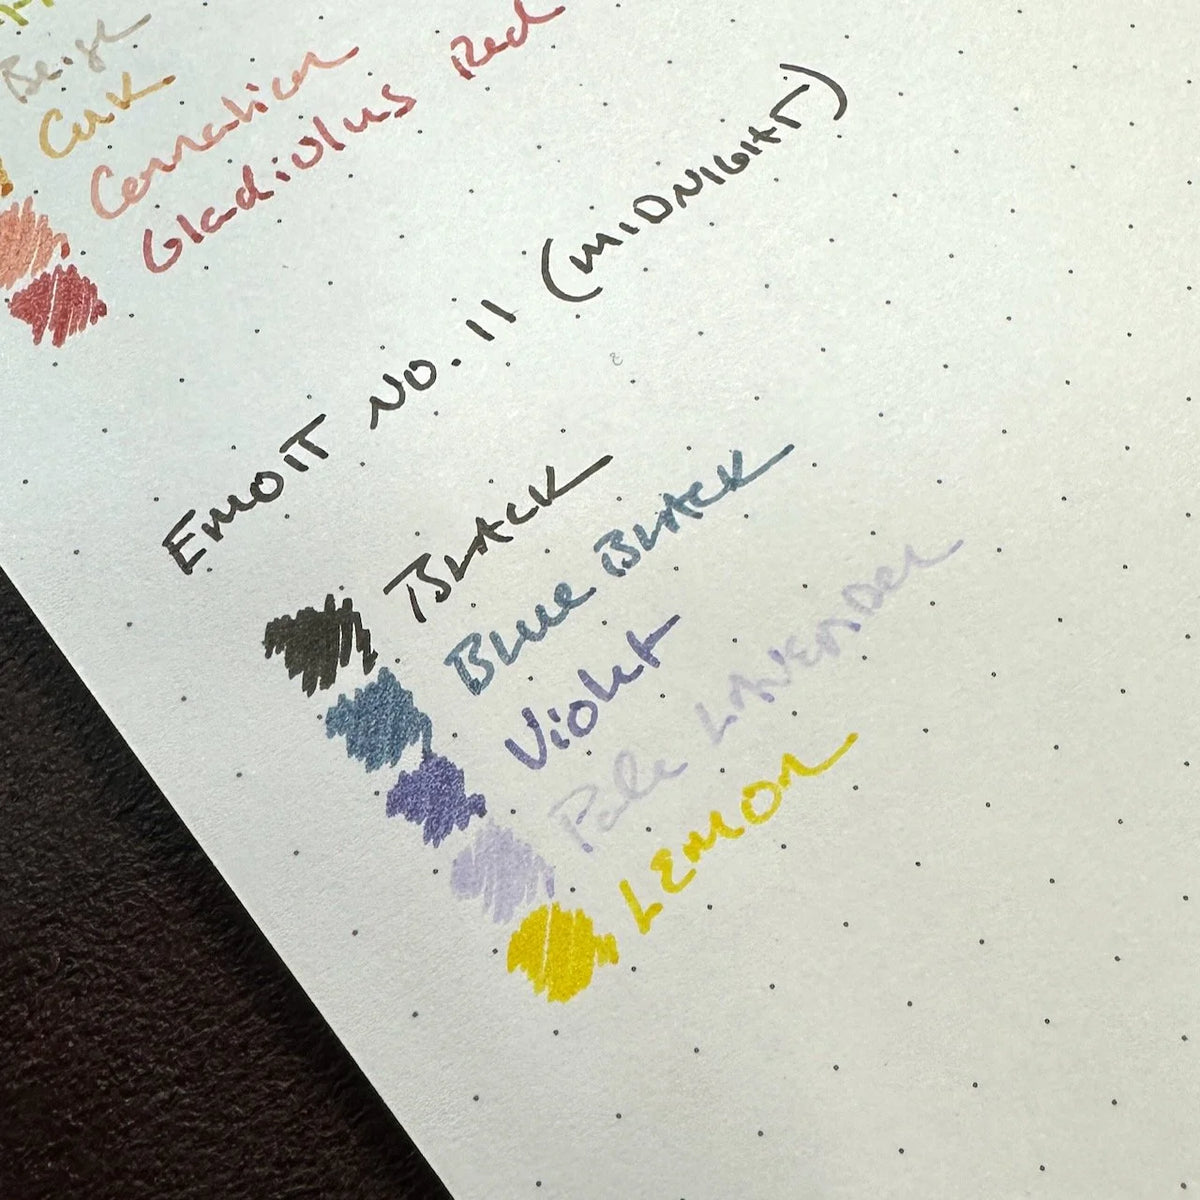 Beige
Cork
Carnation
Gladiolus Red
EMOTT NO. 11 (MIDNIGHT)
BLACK
BLUE BLACK
Violet
Pale LAVENDER
LEMON